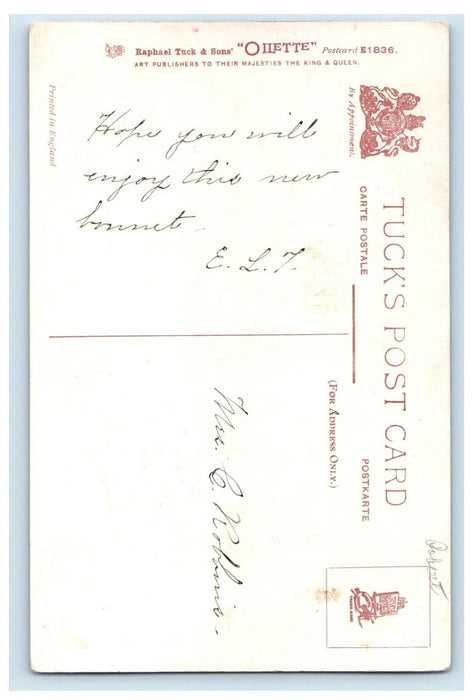 Raphael Tuck & Sons' "OILETTE" Postcard E1836.
ART PUBLISHERS TO THEIR MAJESTIES THE KING & QUEEN.
Printed in England
By Appointment.
Hope you will
enjoy this new
bonnet.
E. L. T.
TUCK'S POST CARD
CARTE POSTALE
POSTKARTE
(FOR ADDRESS ONLY.)
Mrs. C. Robbins.